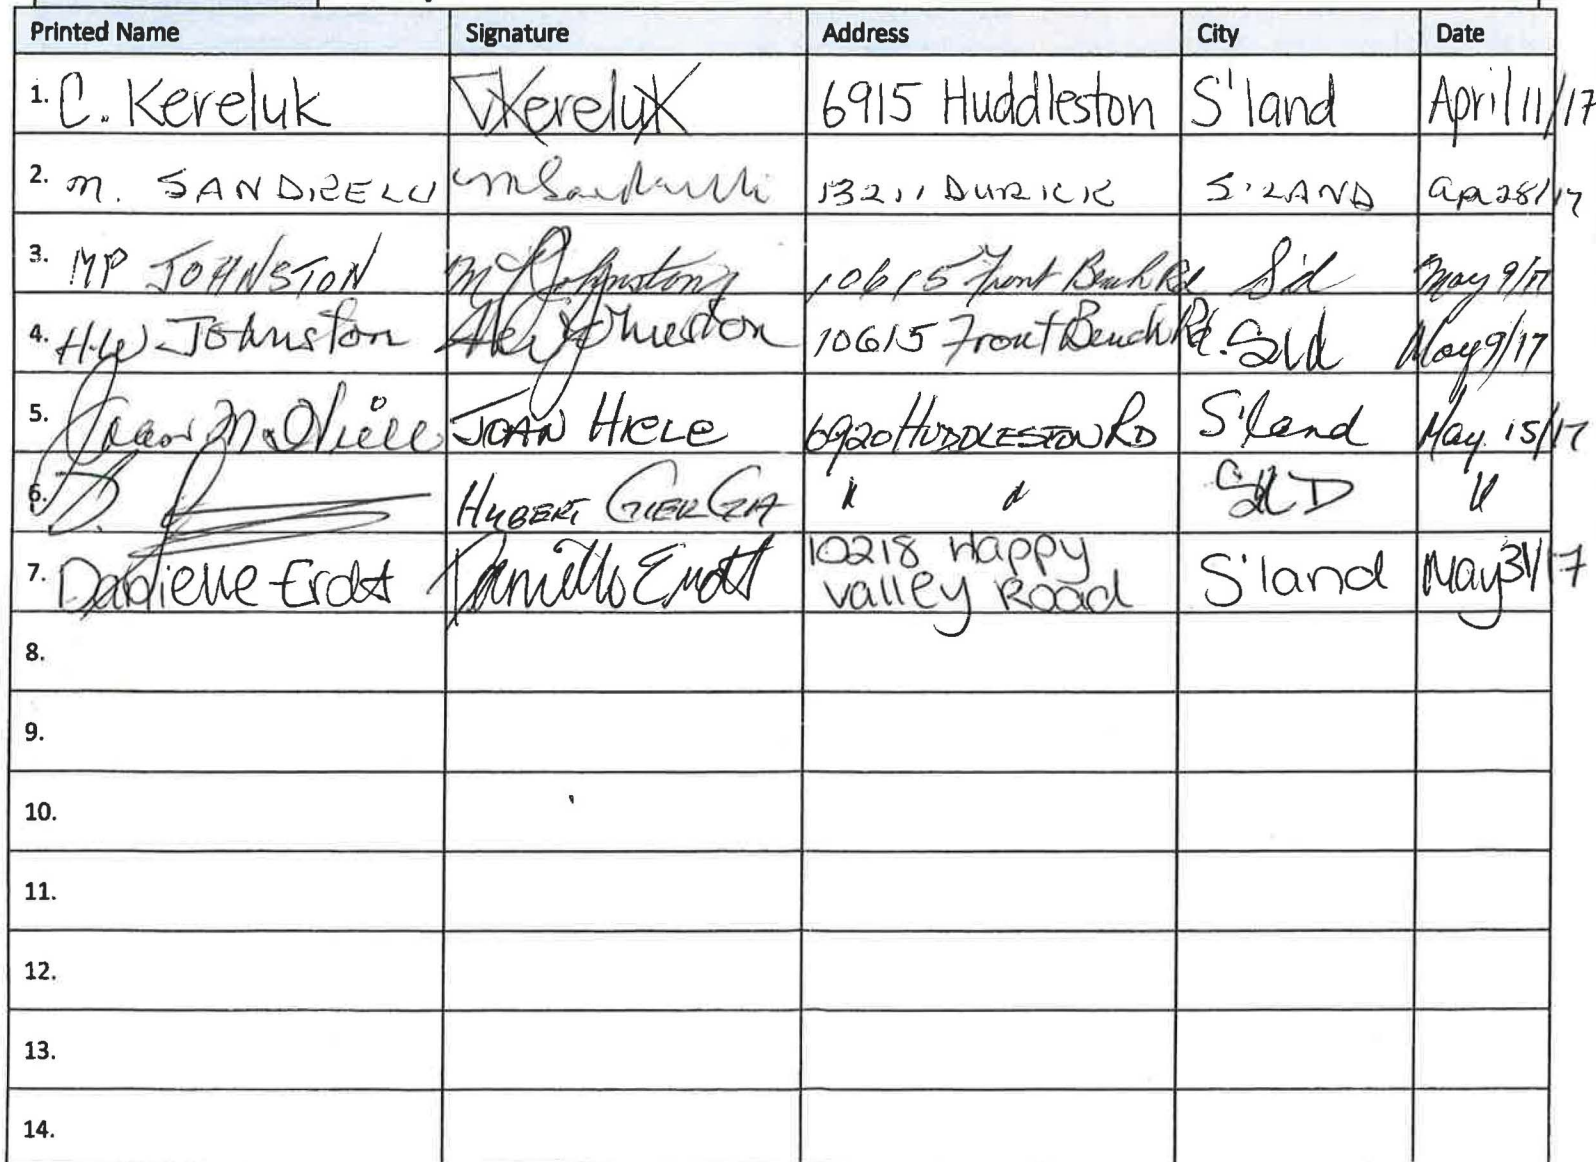 Printed Name Signature Address City Date
1. C. Kereluk Kereluk 6915 Huddleston S'land April 11/17
2. M. SANDRELLI 13211 DURICK S'LAND Apr 28/17
3. MP JOHNSTON MP Johnston 10615 Front Bench Rd S'd May 9/17
4. H.W Johnston Johnston 10615 Front Bench Rd. S'ld May 9/17
5. JOAN HIELE 6920 HUDDLESTON RD S'land May 15/17
6. HUBERT " " SLD "
7. Danielle Erdt Danielle Erdt 10218 Happy
Valley Road S'land May 31/17
8.
9.
10.
11.
12.
13.
14.